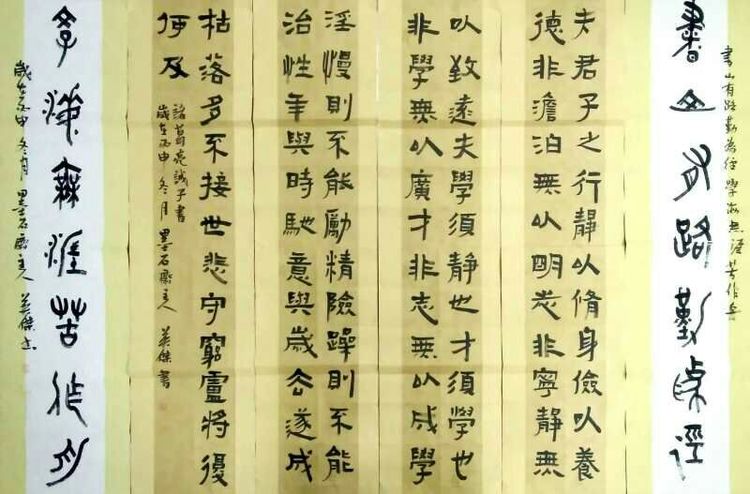 书山有路勤為径學海無涯苦作舟
書山有路勤為徑
夫君子之行靜以脩身儉以養
德非澹泊無以明志非寧靜無
以致遠夫學須靜也才須學也
非學無以廣才非志無以成學
淫慢則不能勵精險躁則不能
治性年與時馳意與歲去遂成
枯落多不接世悲守窮廬將復
何及
諸葛亮誡子書
歲在丙申冬月墨石齋主人 英傑書
學海無涯苦作舟
歲在丙申冬月墨石齋主人 英傑